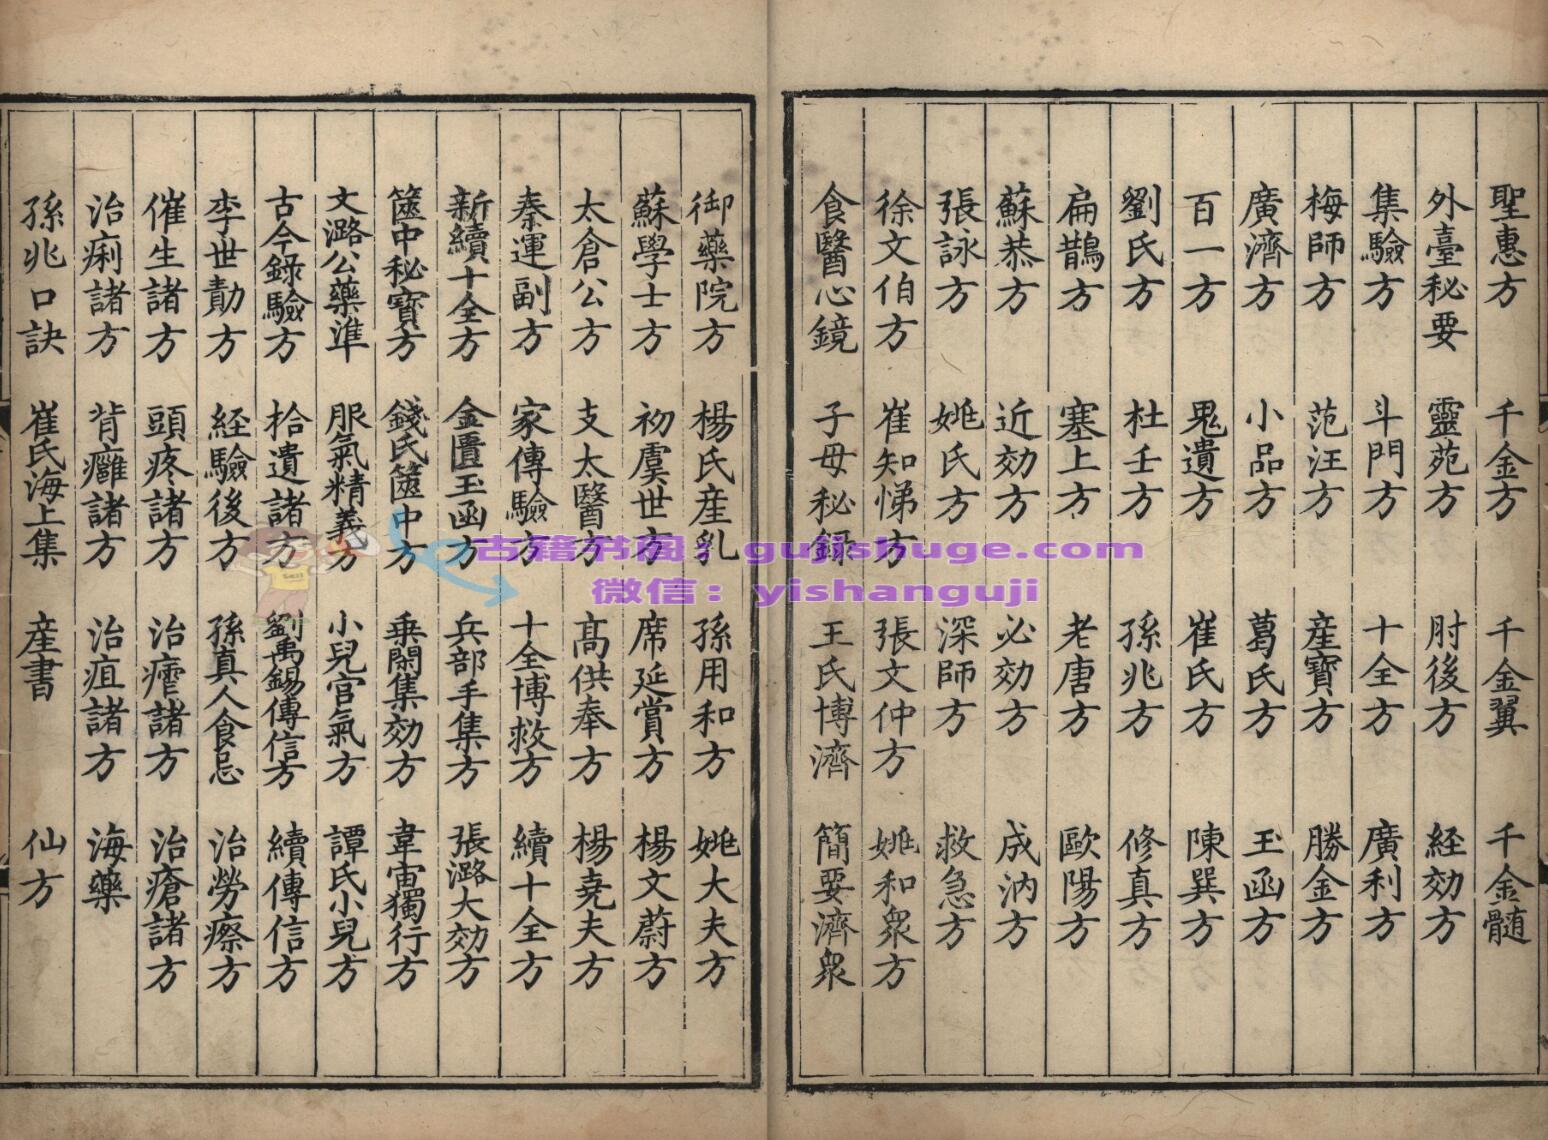 聖惠方 千金方 千金翼 千金髓
外臺秘要 靈苑方 肘後方 経効方
集驗方 斗門方 十全方 廣利方
梅師方 范汪方 產寶方 勝金方
廣濟方 小品方 葛氏方 玉函方
百一方 鬼遺方 崔氏方 陳巽方
劉氏方 杜壬方 孫兆方 修真方
扁鵲方 塞上方 老唐方 歐陽方
蘇恭方 近効方 必効方 成汭方
張詠方 姚氏方 深師方 救急方
徐文伯方 崔知悌方 張文仲方 姚和衆方
食醫心鏡 子母秘錄 王氏博濟 簡要濟衆
御藥院方 楊氏産乳 孫用和方 姚大夫方
蘇學士方 初虞世方 席延賞方 楊文蔚方
太倉公方 支太醫方 髙供奉方 楊堯夫方
秦運副方 家傳驗方 十全博救方 續十全方
新續十全方 金匱玉函方 兵部手集方 張潞大効方
篋中秘寶方 錢氏篋中方 乗閑集効方 韋宙獨行方
文潞公藥準 服氣精義方 小兒宫氣方 譚氏小兒方
古今錄驗方 拾遺諸方 劉禹錫傳信方 續傳信方
李世勣方 経驗後方 孫真人食忌 治勞瘵方
催生諸方 頭疼諸方 治瘧諸方 治瘡諸方
治痢諸方 背癰諸方 治疽諸方 海藥
孫兆口訣 崔氏海上集 産書 仙方
古籍书阁：gujishuge.com
微信：yishanguji